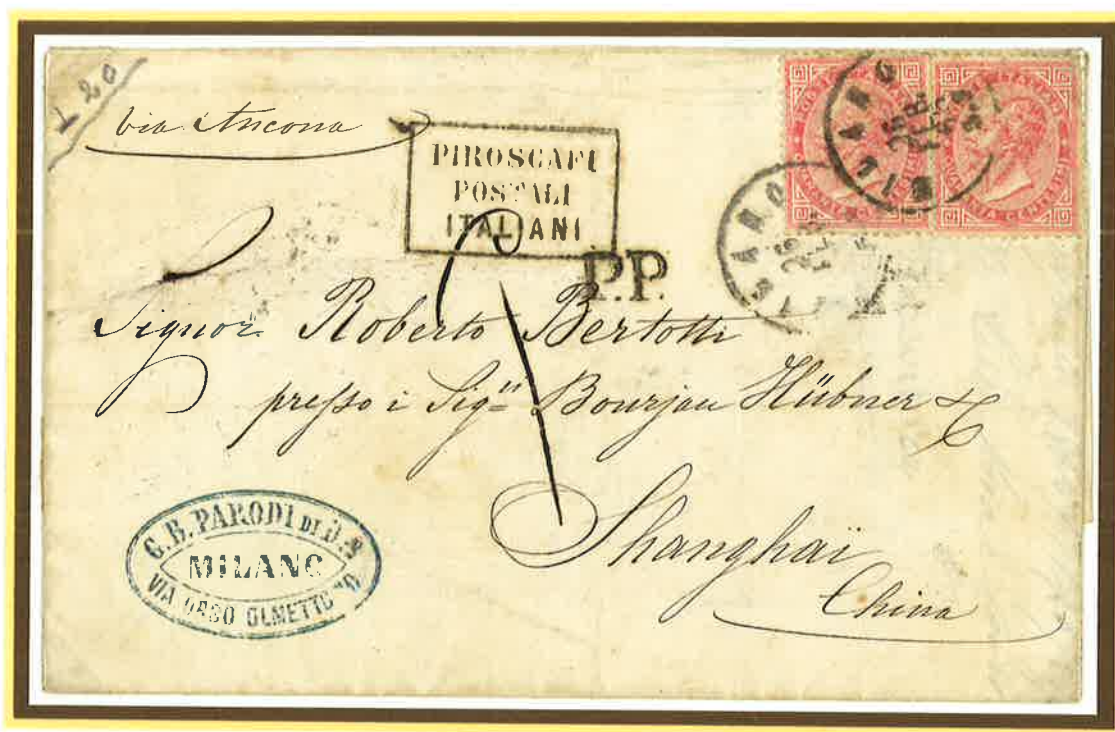 L 20
via Ancona
PIROSCAFI
POSTALI
ITALIANI
P.P.
MILANO
26
FEB
MILANO
26
FEB
QUARANTA CENTESIMI
Signor Roberto Bertotti
presso i Sigri Bourjau Hübner & C
Shanghaï
China
G. B. PARODI DI D.
MILANO
VIA ORSO OLMETTO